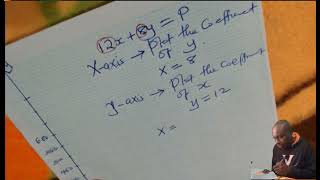 12x + 8y = P
x-axis → Plot the Coefficient
of y
x = 8
y-axis → Plot the Coefficient
of x
y = 12
x =